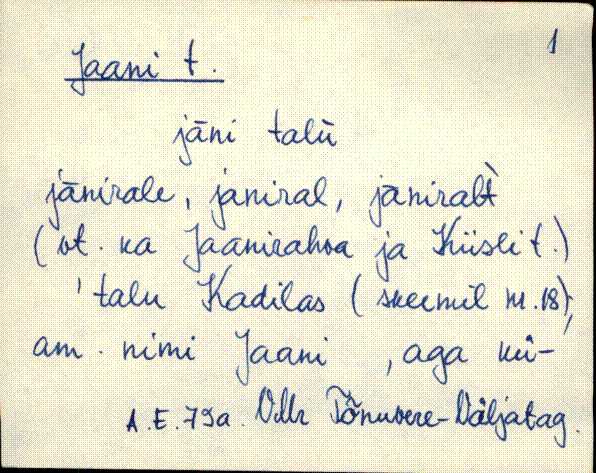 1
Jaani t.
jāni talù
jānirale, jāniral, jāniralt̀
(vt. ka Jaanirahva ja Kiisli t.)
'talu Kadilas (skeemil nr. 18),
am. nimi Jaani , aga kü-
A.E. 79a. VMr Põnuvere-Väljatag.